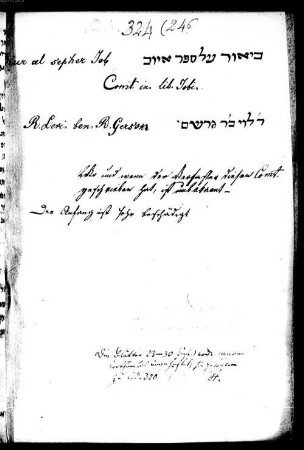 324 (246
ur al sepher Job ביאור על ספר איוב
Comt in lib. Iobi.
R. Levi ben R. Gerson ר' לוי ב"ר גרשום
Wo und wenn der Verfasser diesen Comt.
geschrieben hat, ist unbekannt
Der Anfang ist sehr beschädigt
Die Blätter 23-30
320 St.